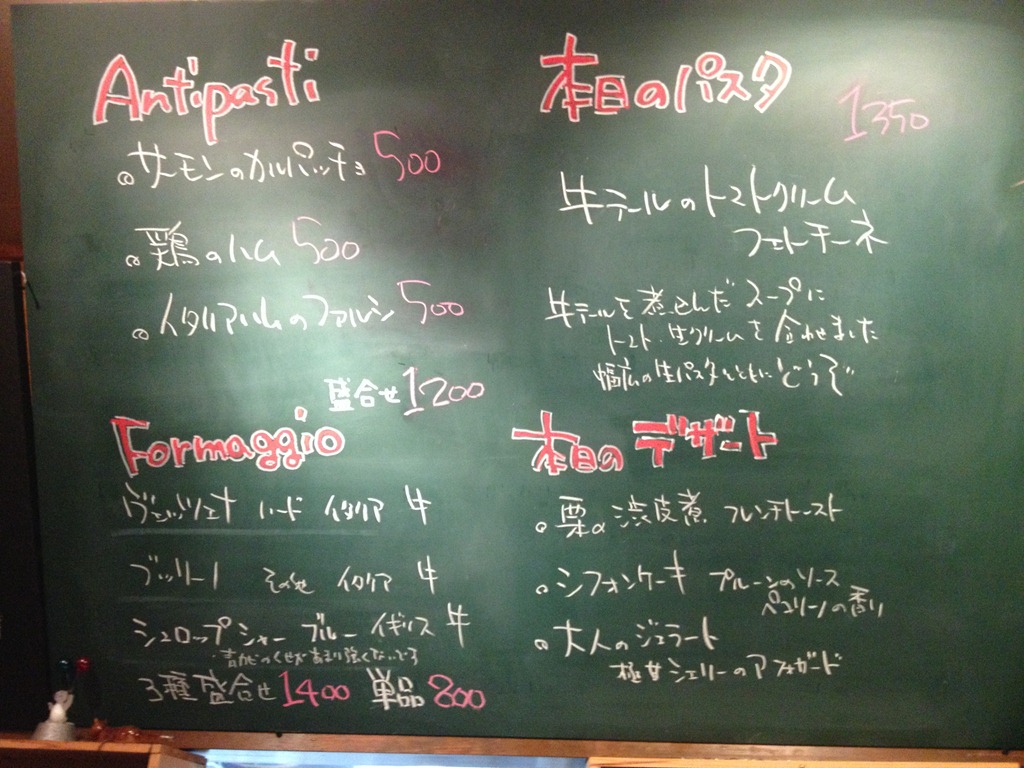 Antipasti
サーモンのカルパッチョ 500
鶏のハム 500
イタリアハムのファルシ 500
盛合せ 1200
Formaggio
ヴェッツェナ ハード イタリア 牛
ブッリーノ その他 イタリア 牛
シュロップシャーブルー イギリス 牛
青カビのくせがあまり強くない
3種盛合せ 1400 単品 800
本日のパスタ
1350
牛テールのトマトクリーム
フェトチーネ
牛テールを煮込んだスープに
トマト・生クリームを合わせました
幅広の生パスタとともにどうぞ
本日のデザート
栗の渋皮煮 フレンチトースト
シフォンケーキ プルーンのソース
の香り
大人のジェラート
極甘シェリーのアフォガード